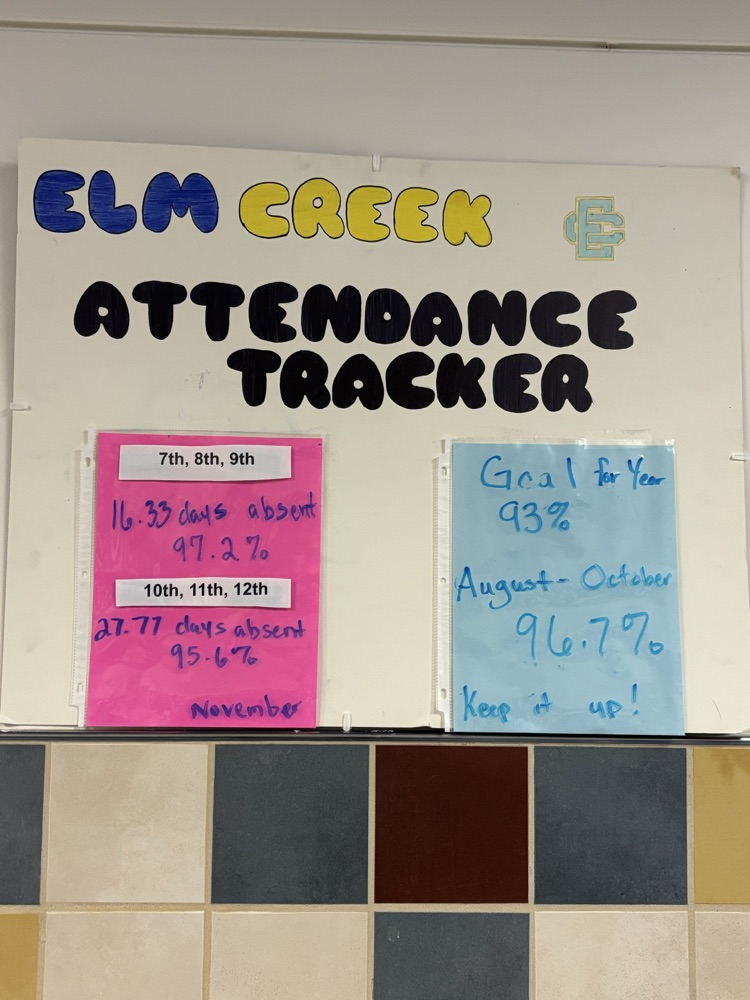 ELM CREEK
EC
ATTENDANCE
TRACKER
7th, 8th, 9th
16.33 days absent
97.2%
10th, 11th, 12th
27.77 days absent
95.6%
November
Goal for Year
93%
August - October
96.7%
Keep it up!